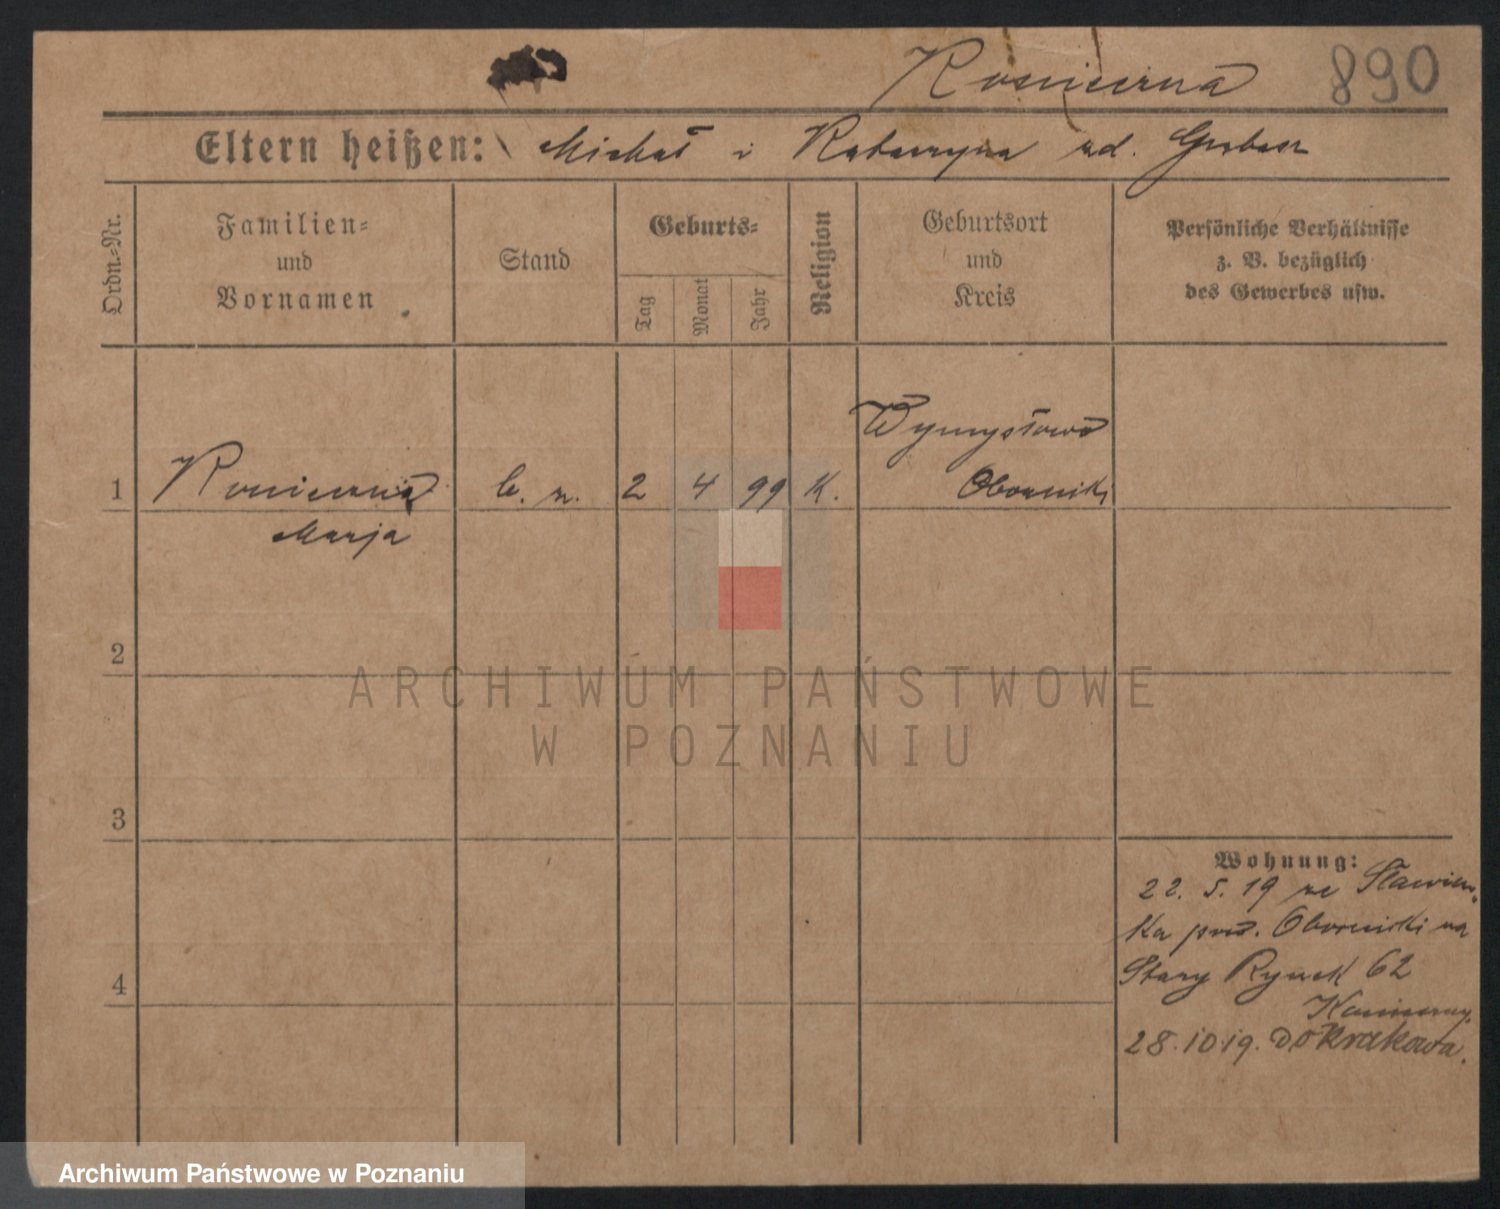 890
Eltern heißen: Michał i Katarzyna zd.
Ordn.-Nr.
Familien-
und
Vornamen
Stand
Geburts-
Tag
Monat
Jahr
Religion
Geburtsort
und
Kreis
Persönliche Verhältnisse
z. B. bezüglich
des Gewerbes usw.
Wymysłowo
1 2 4 99 K. Oborniki
Marja
2
ARCHIWUM PAŃSTWOWE
W POZNANIU
3
Wohnung:
22. 5. 19 ze Sławien-
ka pow. Oborniki na
4 Stary Rynek 62
28.10.19. do Krakowa.
Archiwum Państwowe w Poznaniu